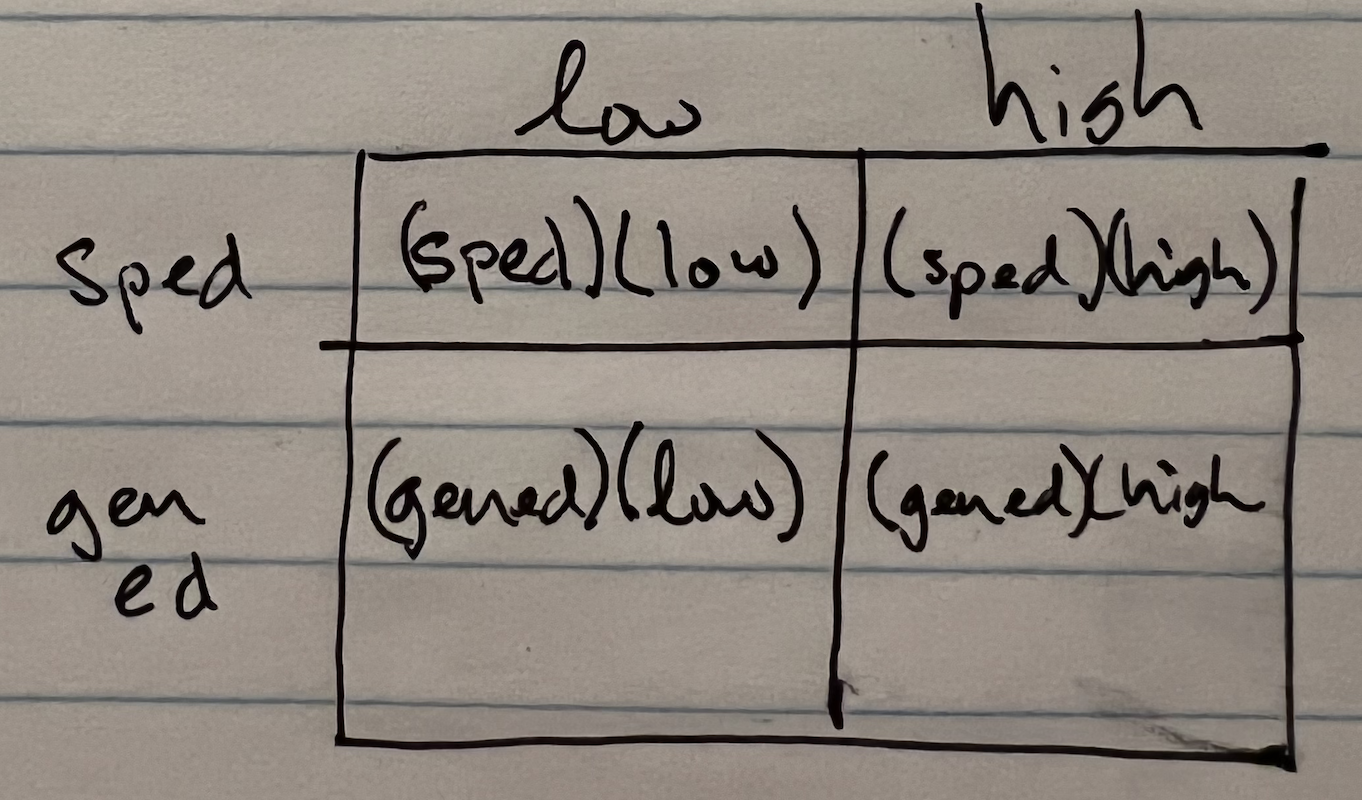 low high
Sped (sped)(low) (sped)(high)
gen (gened)(low) (gened)(high
ed